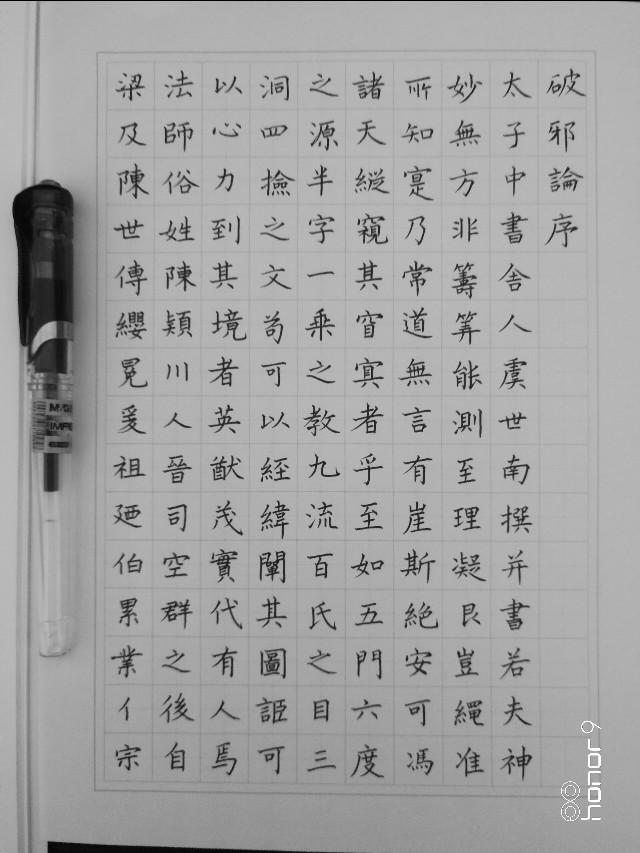 破邪論序
太子中書舍人虞世南撰并書若夫神
妙無方非籌筭能測至理凝艮豈繩准
所知寔乃常道無言有崖斯絕安可馮
諸天縱窺其窅冥者乎至如五門六度
之源半字一乗之教九流百氏之目三
洞四撿之文苟可以經緯闡其圖詎可
以心力到其境者英猷茂實代有人焉
法師俗姓陳潁川人晉司空群之後自
梁及陳世傳纓冕爰祖廼伯累業亻宗
honor 9